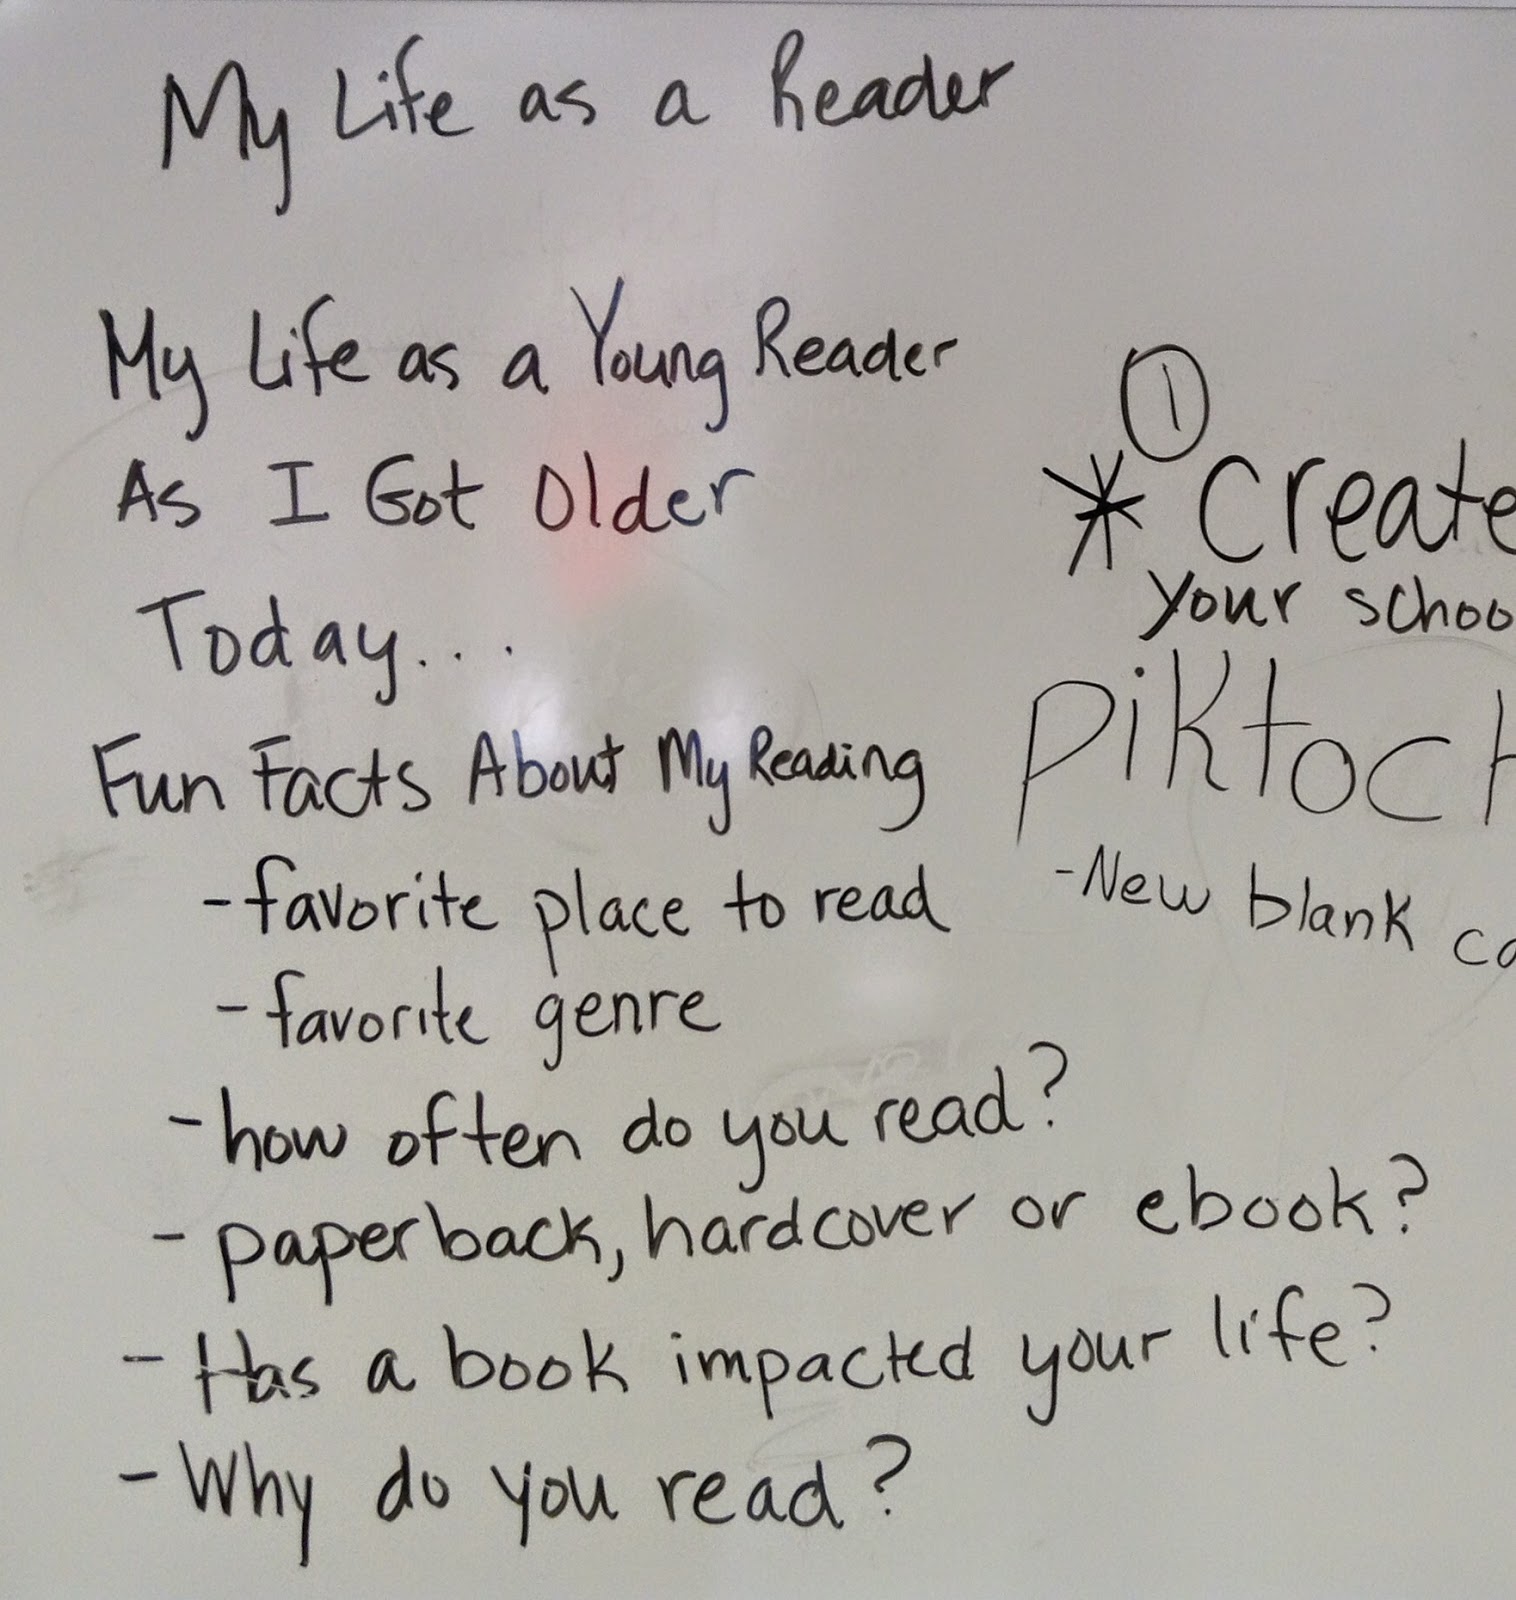 My Life as a Reader
My Life as a Young Reader
As I Got Older
Today...
Fun Facts About My Reading
-favorite place to read
-favorite genre
-how often do you read?
- paperback, hardcover or ebook?
- Has a book impacted your life?
- Why do you read?
①
* Create
your schoo
Piktoch
-New blank ca